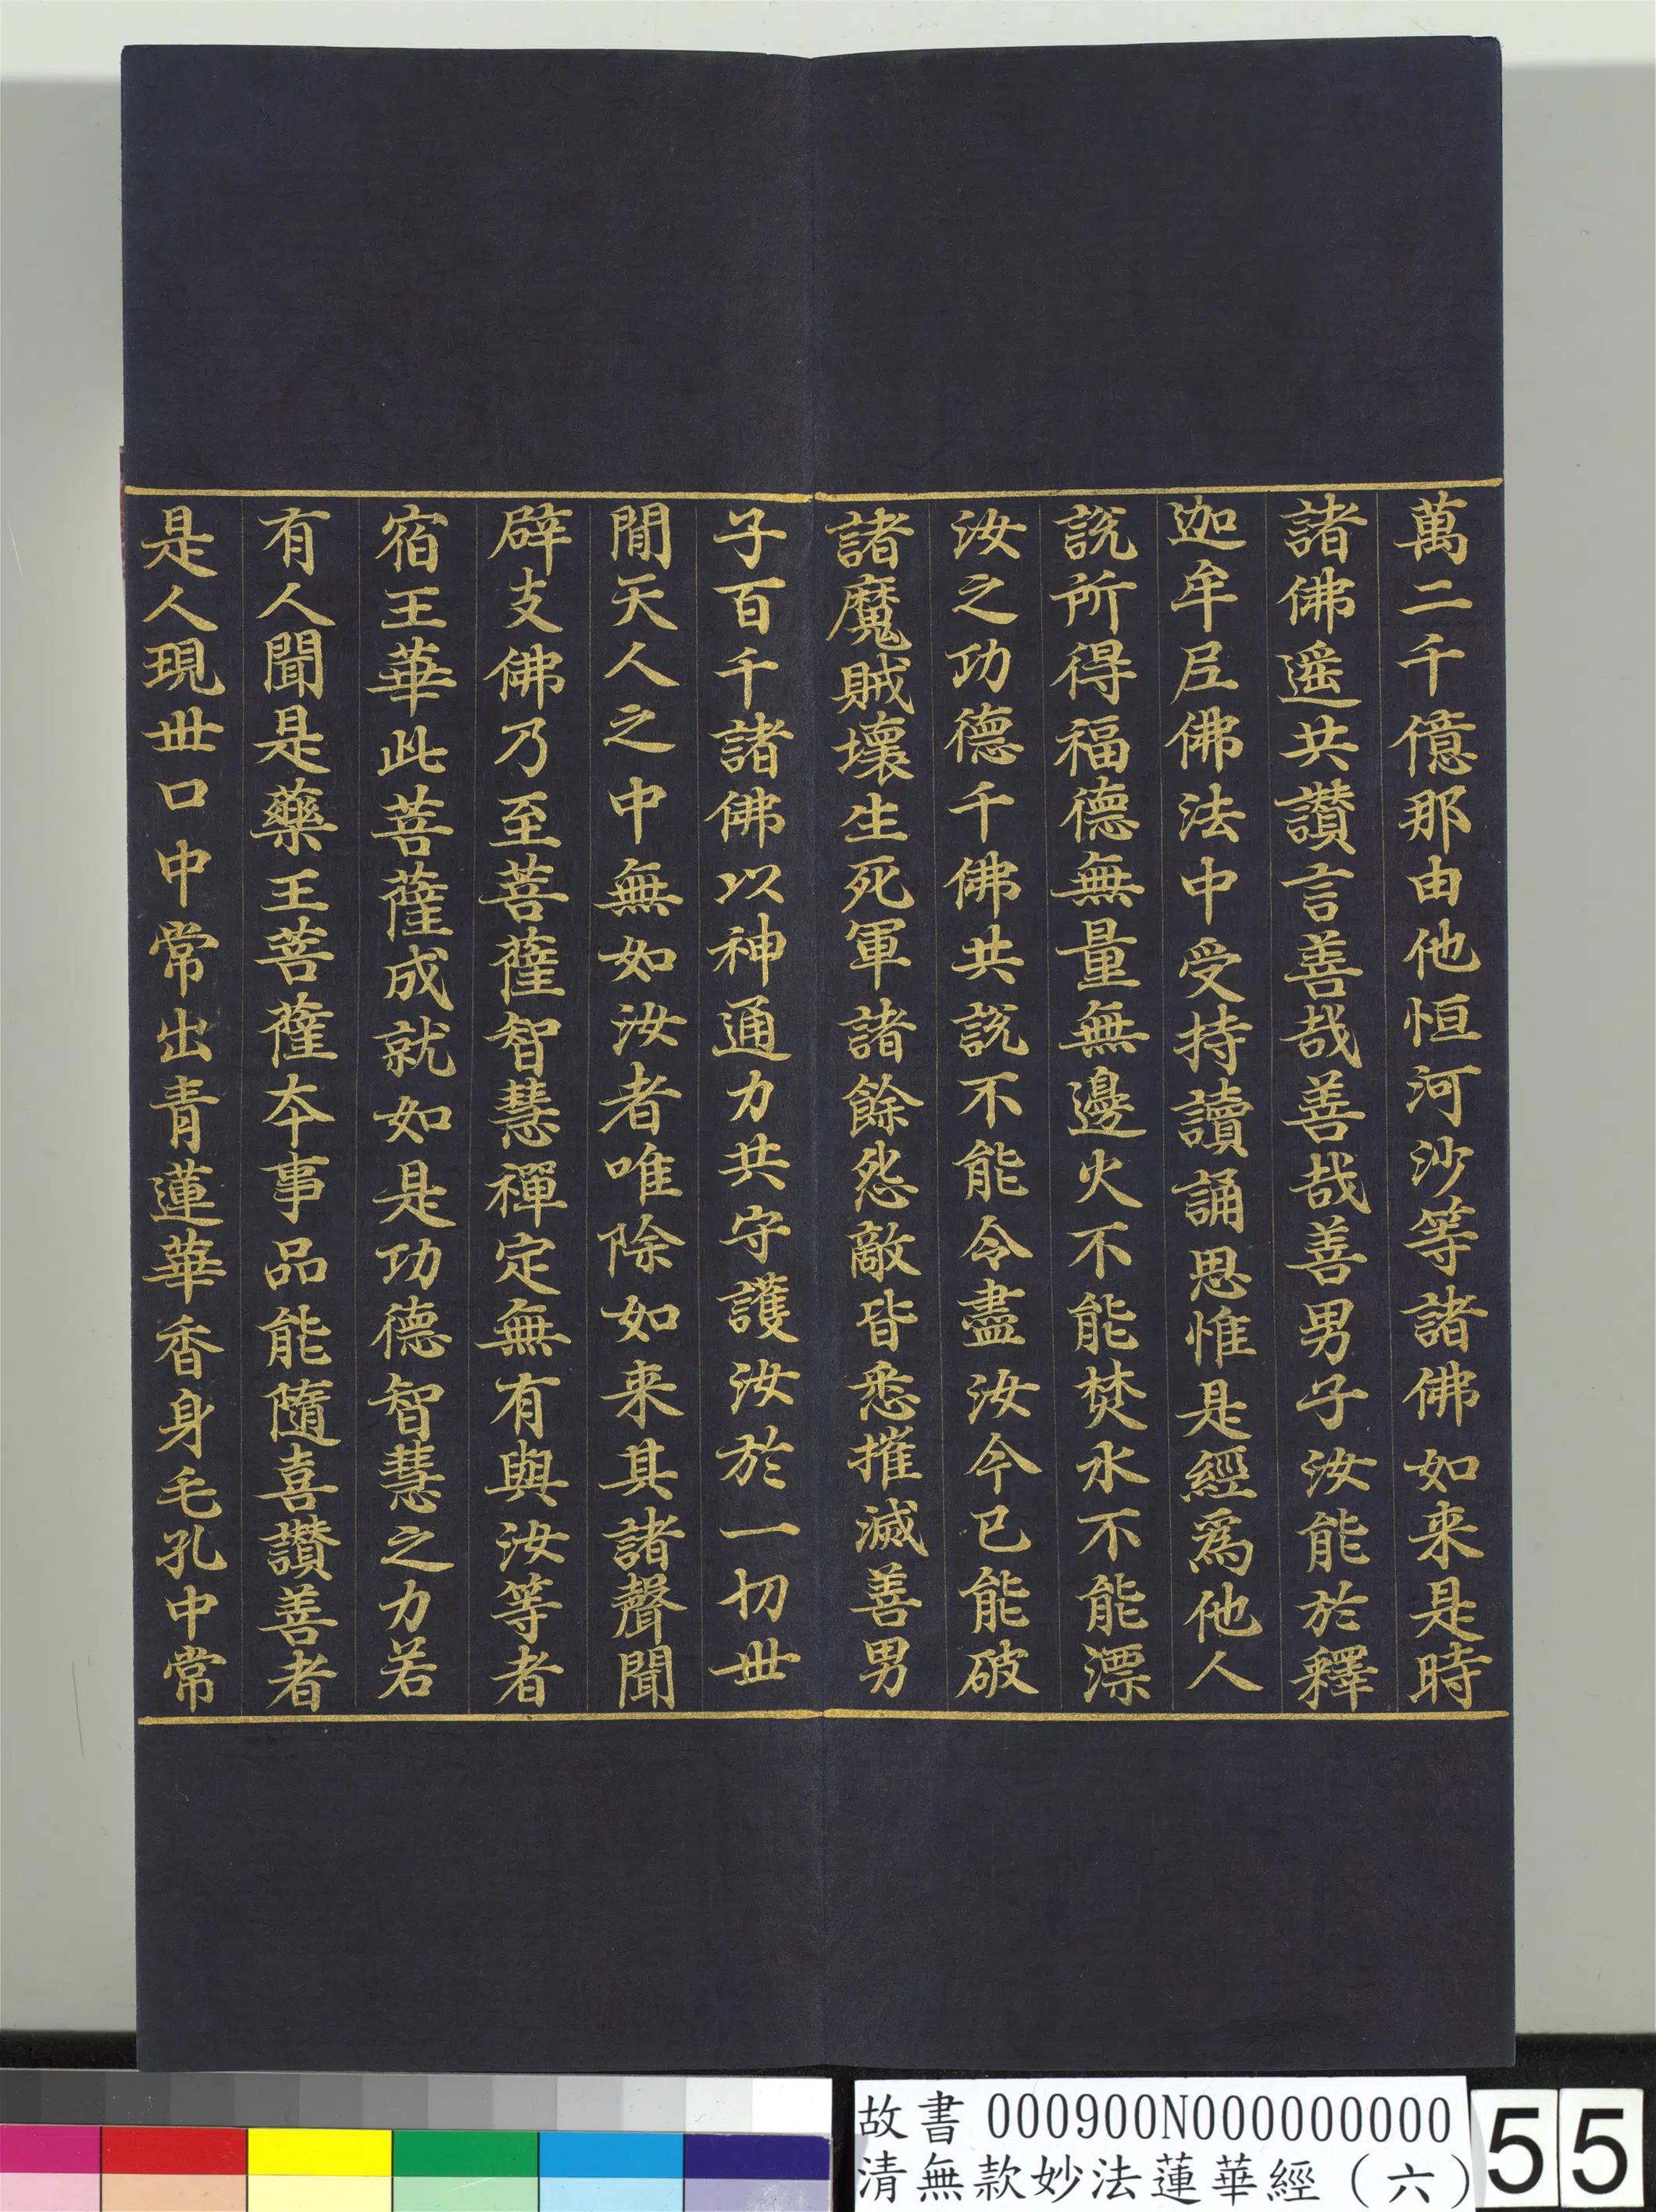 萬二千億那由他恒河沙等諸佛如来是時
諸佛遥共讃言善哉善哉善男子汝能於釋
迦牟尼佛法中受持讀誦思惟是經爲他人
説所得福德無量無邊火不能焚水不能漂
汝之功德千佛共説不能令盡汝今已能破
諸魔賊壞生死軍諸餘怨敵皆悉摧滅善男
子百千諸佛以神通力共守護汝於一切世
間天人之中無如汝者唯除如来其諸聲聞
辟支佛乃至菩薩智慧禪定無有與汝等者
宿王華此菩薩成就如是功德智慧之力若
有人聞是藥王菩薩本事品能隨喜讃善者
是人現世口中常出青蓮華香身毛孔中常
故書 000900N000000000
清無款妙法蓮華經（六）
55